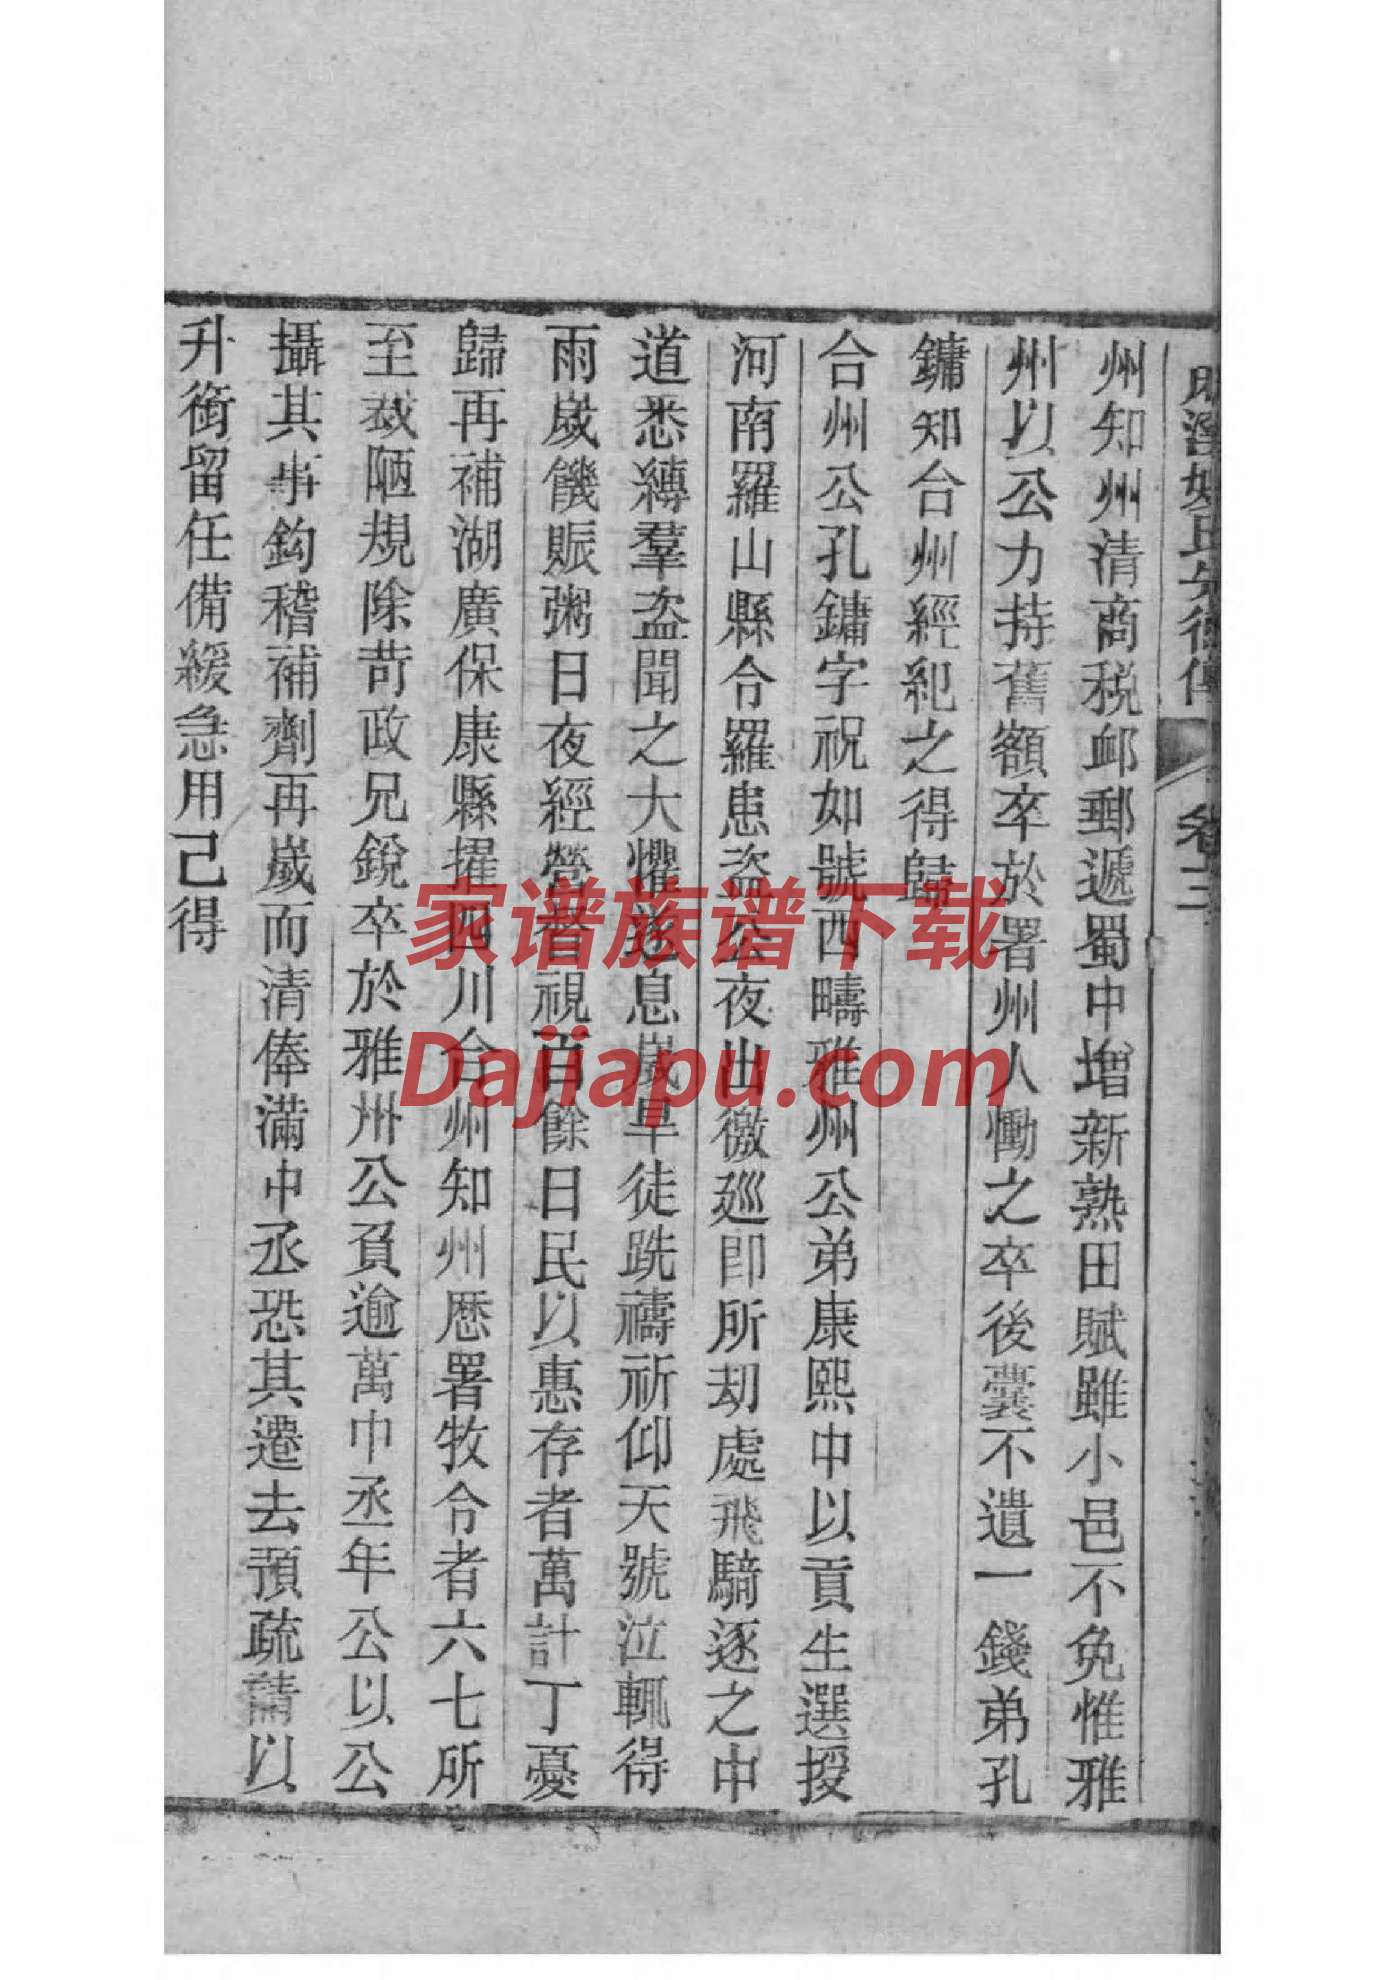 卷二
州知州清商税邮郵遞蜀中增新熟田賦雖小邑不免惟雅
州以公力持舊額卒於署州人慟之卒後囊不遺一錢弟孔
鏞知台州經紀之得歸
合州公孔鏞字祝如號西疇雅州公弟康熙中以貢生選授
河南羅山縣令羅患盗公夜出徼廵卽所刧處飛騎逐之中
道悉縛羣盗聞之大懼慫息嵗旱徒跣禱祈仰天號泣輒得
雨嵗饑賑粥日夜經營督視百餘日民以惠存者萬計丁憂
歸再補湖廣保康縣擢四川合州知州歴署牧令者六七所
至裁陋規除苛政兄鋭卒於雅州公負逾萬中丞年公以公
攝其事鈎稽補劑再嵗而清俸滿中丞恐其遷去預疏請以
升銜留任備緩急用己得
家谱族谱下载
Dajiapu.com